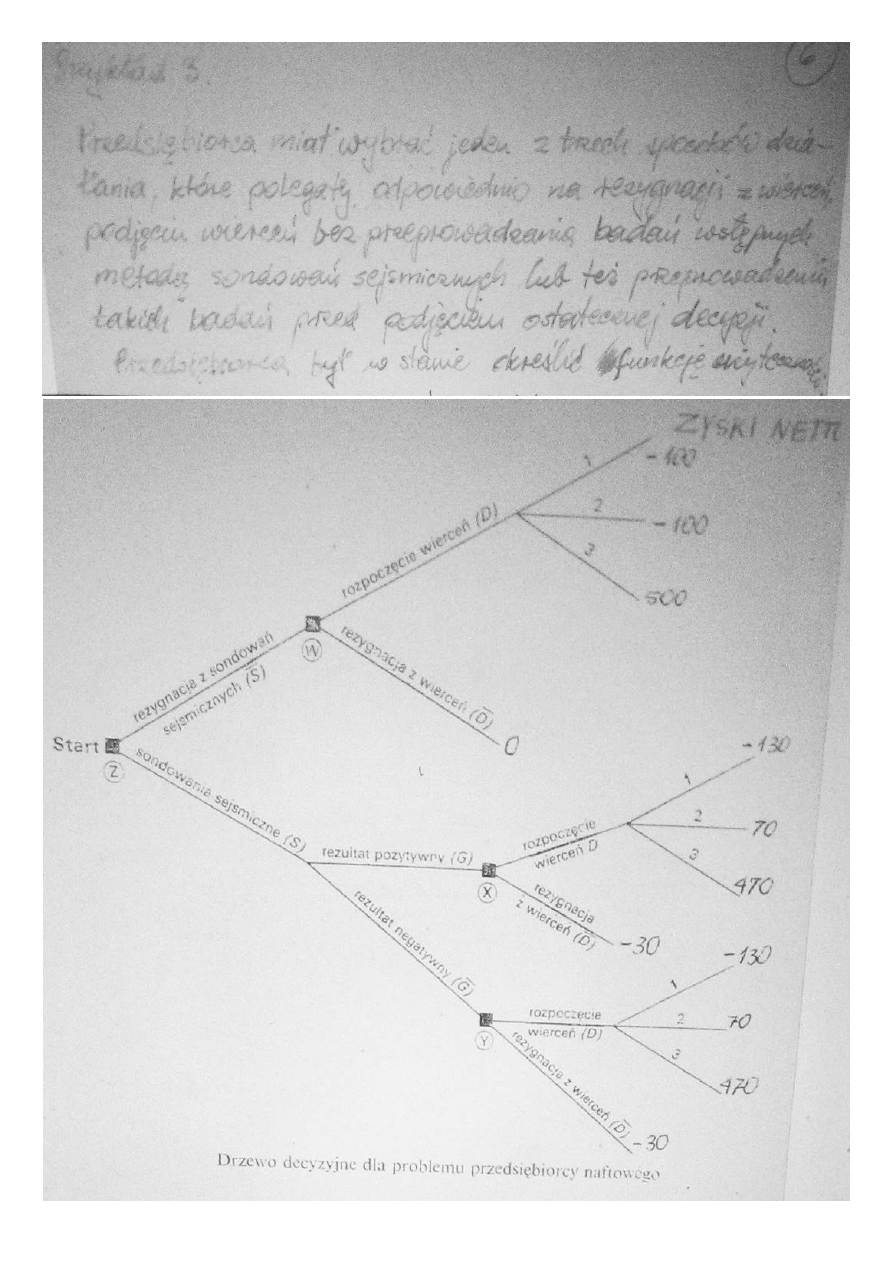 Przykład 3.
6
Przedsiębiorca miał wybrać jeden z trzech sposobów dzia-
łania, które polegały odpowiednio na rezygnacji z wierceń,
podjęciu wierceń bez przeprowadzania badań wstępnych
metodą sondowań sejsmicznych lub też przeprowadzeniu
takich badań przed podjęciem ostatecznej decyzji.
Przedsiębiorca był w stanie określić funkcję użyteczności.
ZYSKI NETT
1
-100
rozpoczęcie wierceń (D)
2
-100
3
500
W
rezygnacja z sondowań
sejsmicznych (S̅)
rezygnacja z wierceń (D̅)
0
Start
Z
sondowania sejsmiczne (S)
-130
1
rozpoczęcie
wierceń D
2
70
3
470
rezultat pozytywny (G)
X
rezygnacja
z wierceń (D̅)
-30
rezultat negatywny (G̅)
-130
1
rozpoczęcie
wierceń (D)
2
70
3
470
Y
rezygnacja z wierceń (D̅)
-30
Drzewo decyzyjne dla problemu przedsiębiorcy naftowego